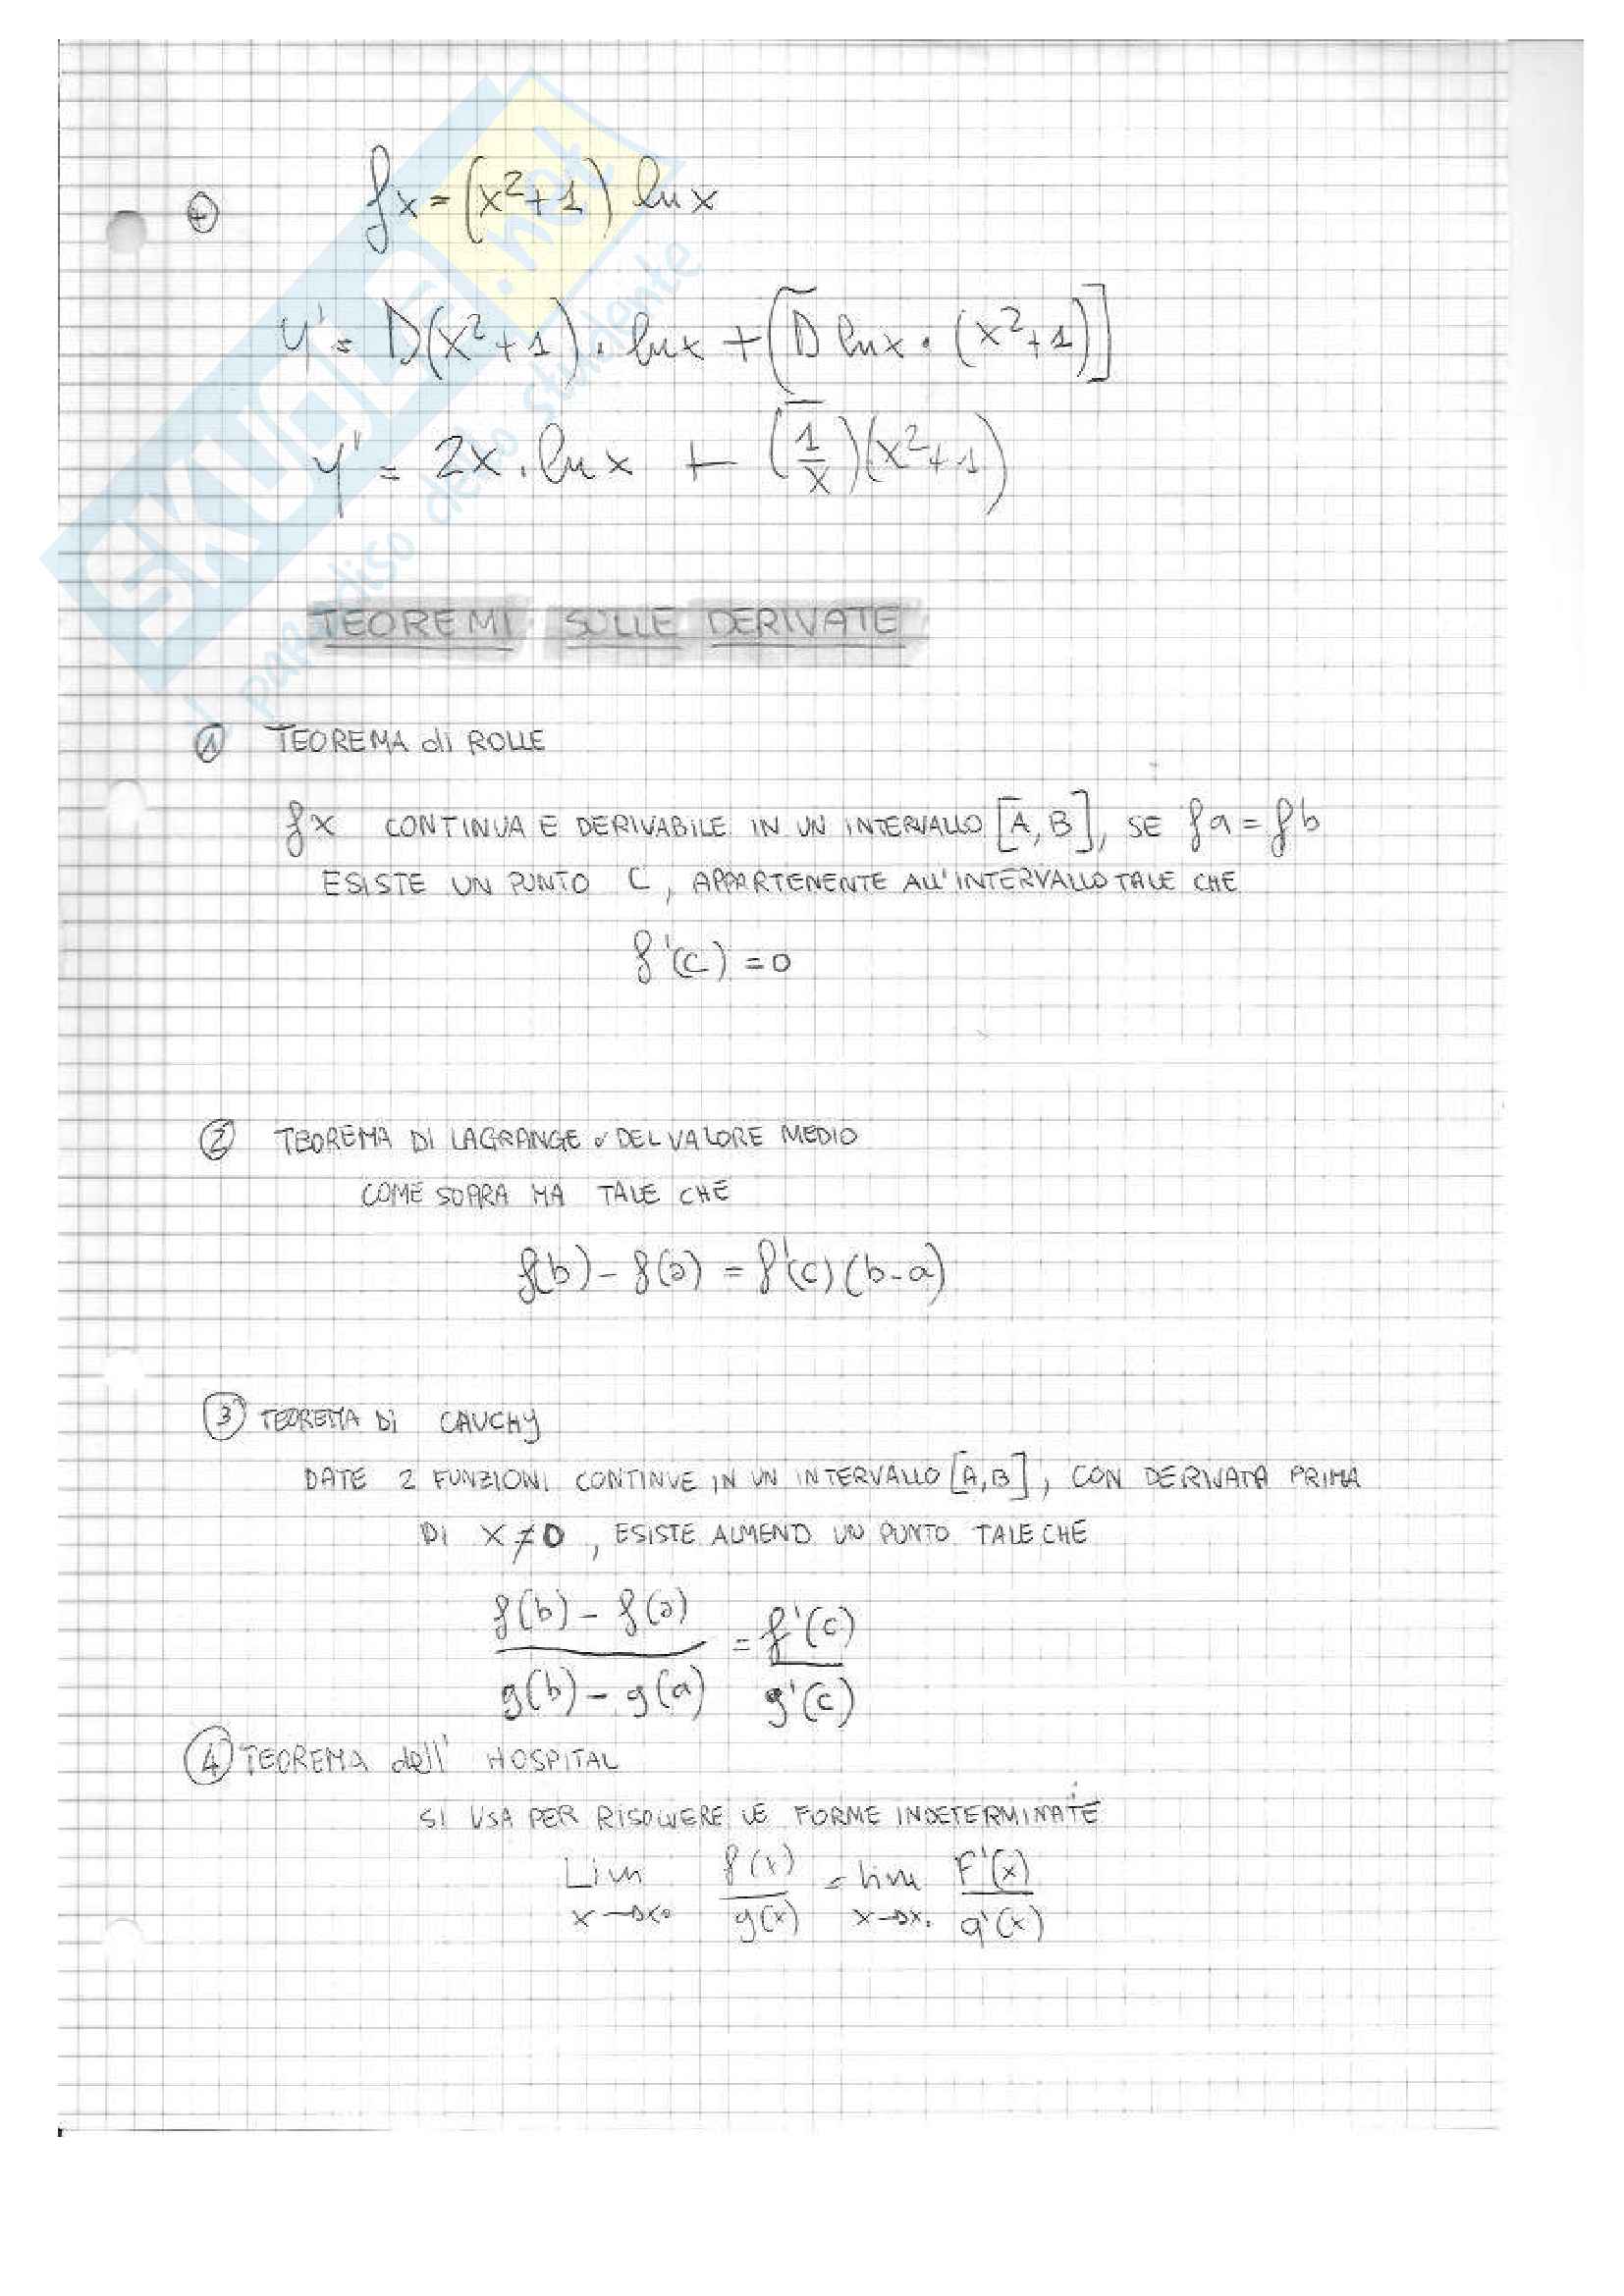 SKUOLA.net
il paradiso dello studente
+ fx = (x²+1) ln x
y' = D(x²+1) · ln x + [D ln x · (x²+1)]
y' = 2x · ln x + (1/x)(x²+1)
TEOREMI SULLE DERIVATE
① TEOREMA di ROLLE
fx CONTINUA E DERIVABILE IN UN INTERVALLO [A, B], SE fa = fb
ESISTE UN PUNTO C, APPARTENENTE All' INTERVALLO TALE CHE
f'(c) = 0
② TEOREMA DI LAGRANGE o DEL VALORE MEDIO
COME SOPRA MA TALE CHE
f(b) - f(a) = f'(c) (b-a)
③ TEOREMA Di CAUCHY
DATE 2 FUNZIONI CONTINUE IN UN INTERVALLO [A, B], CON DERIVATA PRIMA
DI X ≠ 0, ESISTE ALMENO UN PUNTO TALE CHE
f(b) - f(a) / g(b) - g(a) = f'(c) / g'(c)
④ TEOREMA dell' HOSPITAL
SI USA PER RISOLVERE LE FORME INDETERMINATE
Lim x→x₀ f(x) / g(x) = lim x→x₀ F'(x) / g'(x)